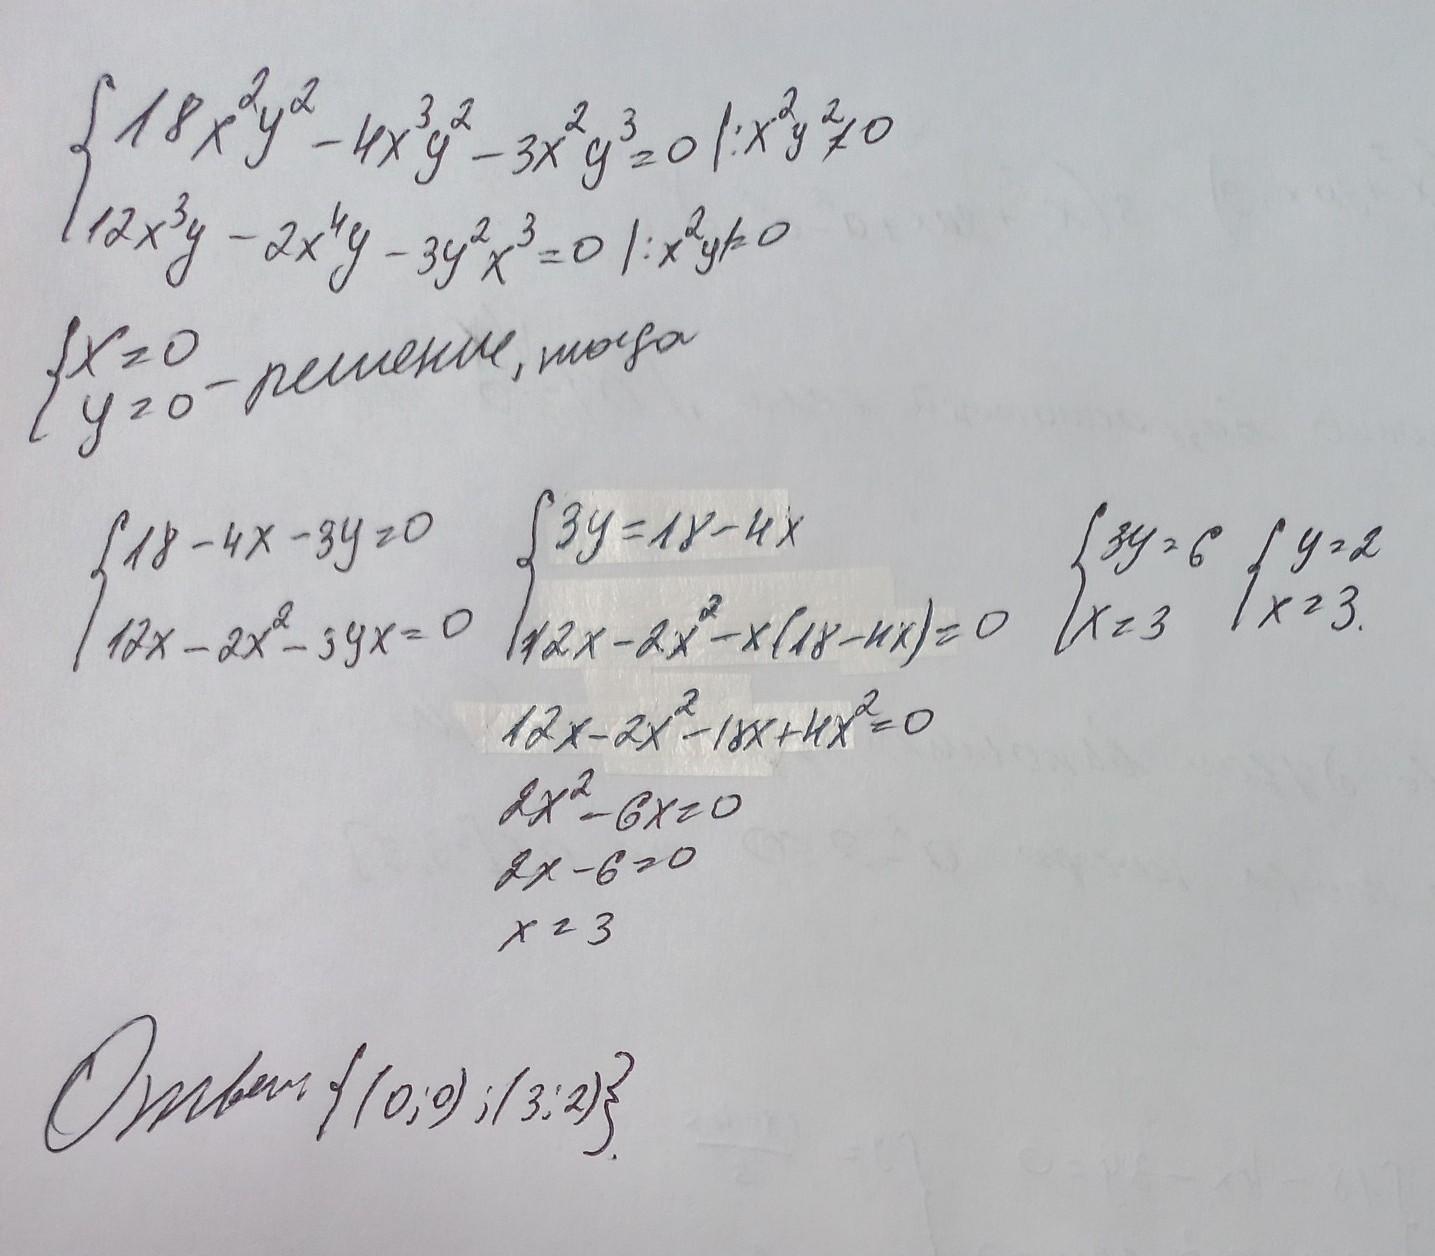 {18x²y² - 4x³y² - 3x²y³ = 0 |: x²y² ≠ 0
12x³y - 2x⁴y - 3y²x³ = 0 |: x²y ≠ 0
{x = 0
y = 0 - решение, тогда
{18 - 4x - 3y = 0 {3y = 18 - 4x {3y = 6 {y = 2
12x - 2x² - 3yx = 0 12x - 2x² - x(18 - 4x) = 0 x = 3 x = 3.
12x - 2x² - 18x + 4x² = 0
2x² - 6x = 0
2x - 6 = 0
x = 3
Ответ {(0;0);(3;2)}.